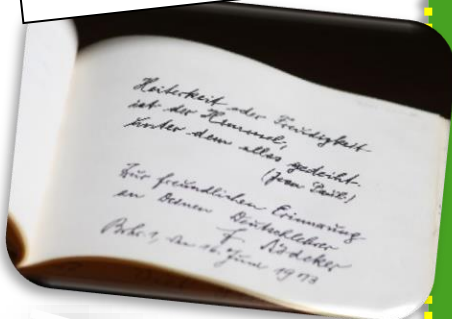 Heiterkeit oder Freudigkeit
ist der Himmel,
unter dem alles gedeiht.
(Jean Paul.)
Zur freundlichen Erinnerung
an Deinen Deutschlehrer
F. Rödeker
den 16. Juni 1973